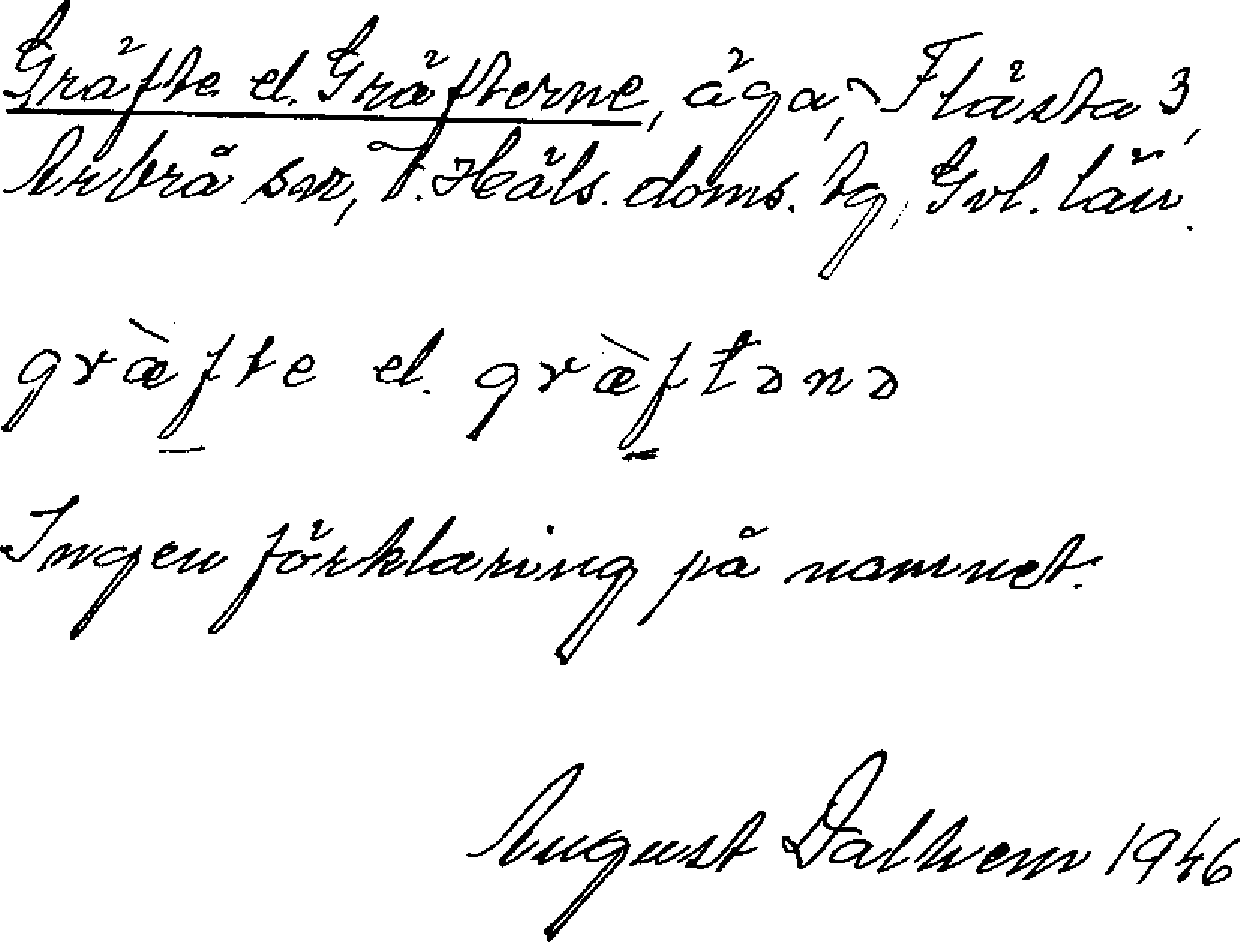 Gräfte el. Gräfterne, äga, Flästa 3,
Arbrå sn, V. Häls. doms. tg, Gvl. län.
græ̀fte el. græ̀ftənə
Ingen förklaring på namnet.
August Dalhem 1946